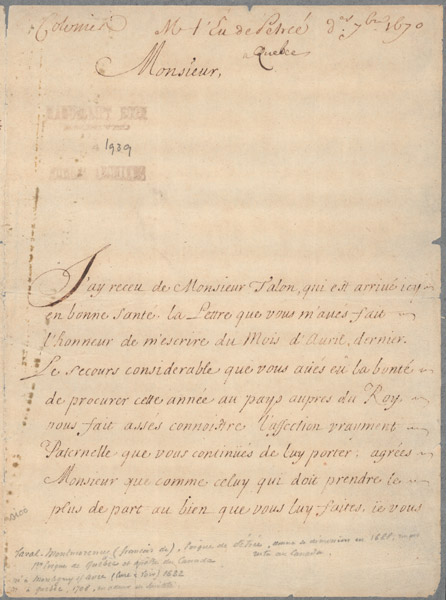 Colonies Mr l'Ev. de Petrée dr 7bre 1670
a Quebec
Monsieur,
1939
J'ay receu de Monsieur Talon, qui est arrivé icy
en bonne santé la Lettre que vous m'aués fait
l'honneur de m'escrire du Mois d'Auril dernier.
Le secours considerable que vous aués eu la bonté
de procurer cette année au pays aupres du Roy
nous fait assés connoistre l'affection vrayment
Paternelle que vous continués de luy porter, agrées
Monsieur que comme celuy qui doit prendre le
plus de part au bien que vous luy faites, ie vous
Laval-Montmorency (François de), évêque de Pétrée,
1er évêque de Québec et apôtre du Canada
né à Montigny 1622
à Québec, 1708